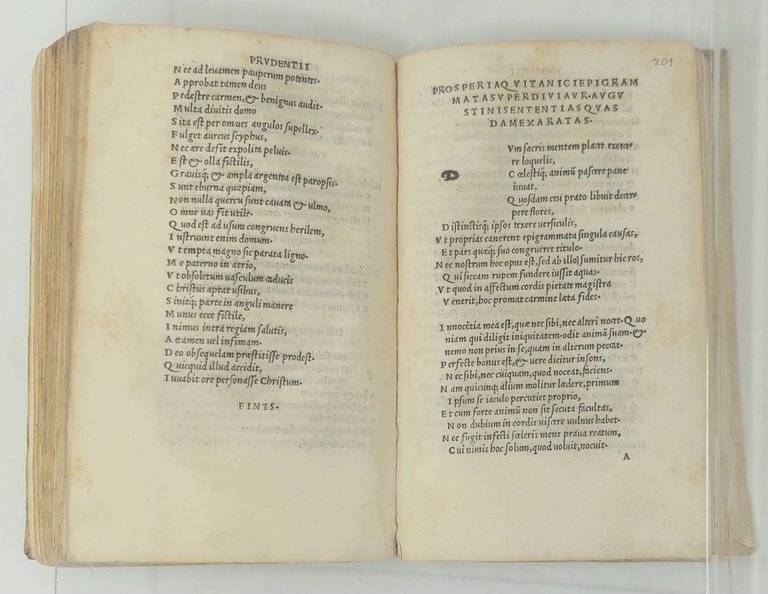 PRVDENTII
N ec ad leuamen pauperum potentes.
A pprobat tamen deus
P edestre carmen, & benignus audit.
M ulta diuitis domo
S ita est per omnes angulos supellex.
F ulget aureus scyphus,
N ec ære defit expolita peluis.
E st & olla fictilis,
G rauisq; & ampla argentea est paropsis.
S unt eburna quæpiam,
N on nulla quercu sunt cauata & ulmo,
O mne uas fit utile.
Q uod est ad usum congruens herilem,
I nstruunt enim domum.
V t empta magno sic parata ligno.
M e paterno in atrio,
V t obsoletum uasculum caducis
C hristus aptat usibus,
S initq; parte in anguli manere
M unus ecce fictile,
I nimus intra regiam salutis,
A ttamen uel infimam.
D eo obsequelam præstitisse prodest.
Q uicquid illud accidit,
I uuabit ore personasse Christum.
FINIS.
201
PROSPERI AQVITANICI EPIGRAM
MATA SVPER DIVI AVR. AVGV
STINI SENTENTIAS QVAS
DAM EXARATAS.
D
Vm sacris mentem placet exerce-
re loquelis,
C œlestiq; animũ pascere pane
iuuat,
Q uosdam ceu prato libuit decer-
pere flores,
D istinctisq; ipsos texere uersiculis,
V t proprias canerent epigrammata singula causas,
E t pars quæq; suo congrueret titulo.
N ec nostrum hoc opus est, sed ab illo sumitur hic ros,
Q ui siccam rupem fundere iussit aquas.
V t quod in affectum cordis pietate magistra
V enerit, hoc promat carmine læta fides.
I nnocẽtia mea est, quæ nec sibi, nec alteri nocet. Q uo
niam qui diligit iniquitatem. odit animã suam. &
nemo non prius in se, quam in alterum peccat.
P erfecte bonus est, & uere dicitur insons,
N ec sibi, nec cuiquam, quod noceat, faciens.
N am quicunq; alium molitur lædere, primum
I psum se iaculo percutiet proprio,
E t cum forte animũ non sit secuta facultas,
N on dubium in cordis uiscere uulnus habet.
N ec fugit infecti sceleris mens praua reatum,
C ui nimis hoc solum, quod uoluit, nocuit.
A